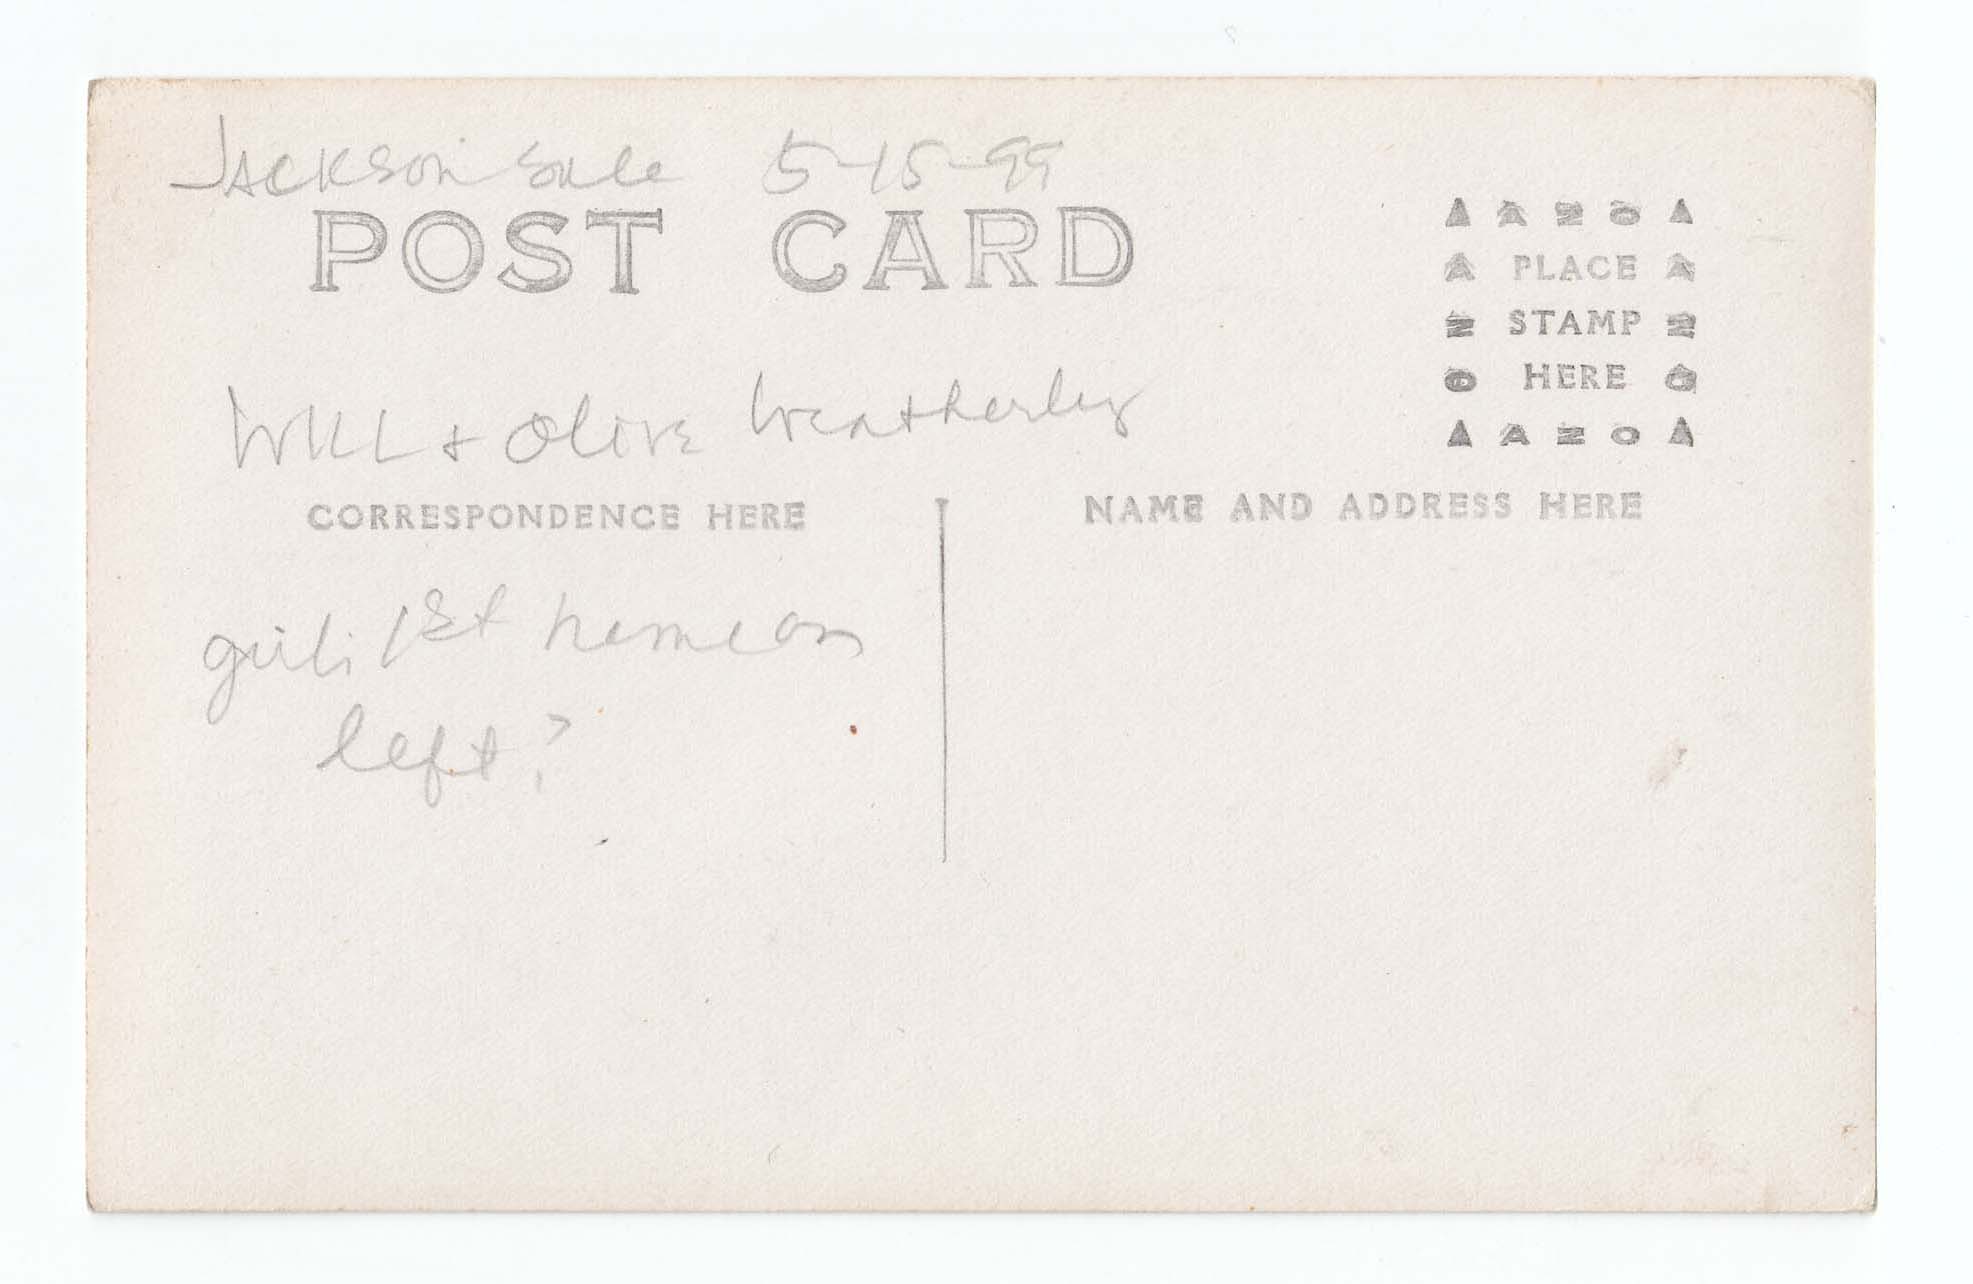 Jackson Sale 5-15-99
POST CARD
AZOA
PLACE
STAMP
HERE
AZO
Will & Olive Weatherley
CORRESPONDENCE HERE
NAME AND ADDRESS HERE
girl: 1st name on
left?